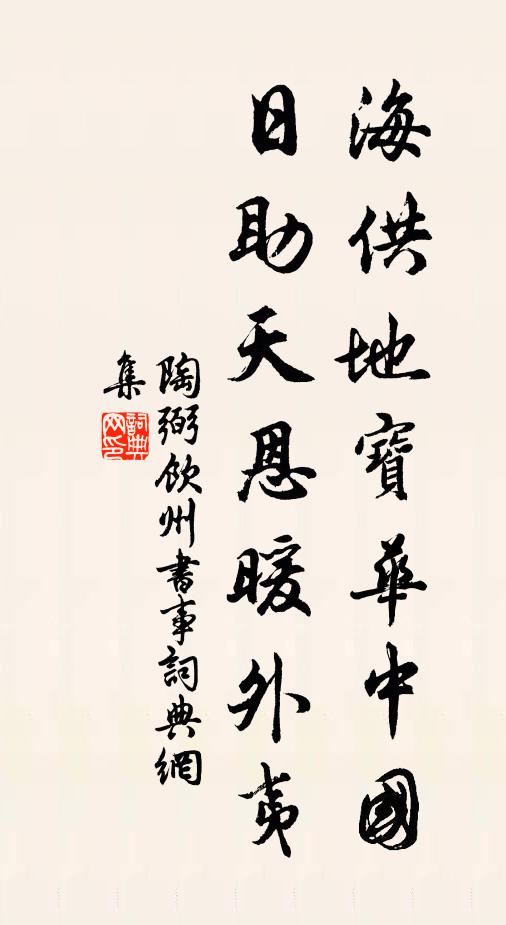 海供地寶華中國
日助天恩暖外夷
陶弼欽州書事詞典網
集
詞典
网印